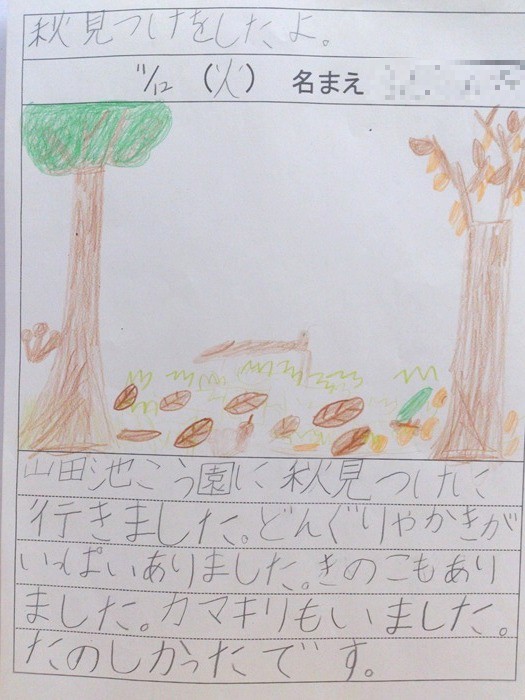 秋見つけをしたよ。
11/12 (火) 名まえ
山田池こう園に秋見つけに
行きました。どんぐりやかきが
いっぱいありました。きのこもあり
ました。カマキリもいました。
たのしかったです。